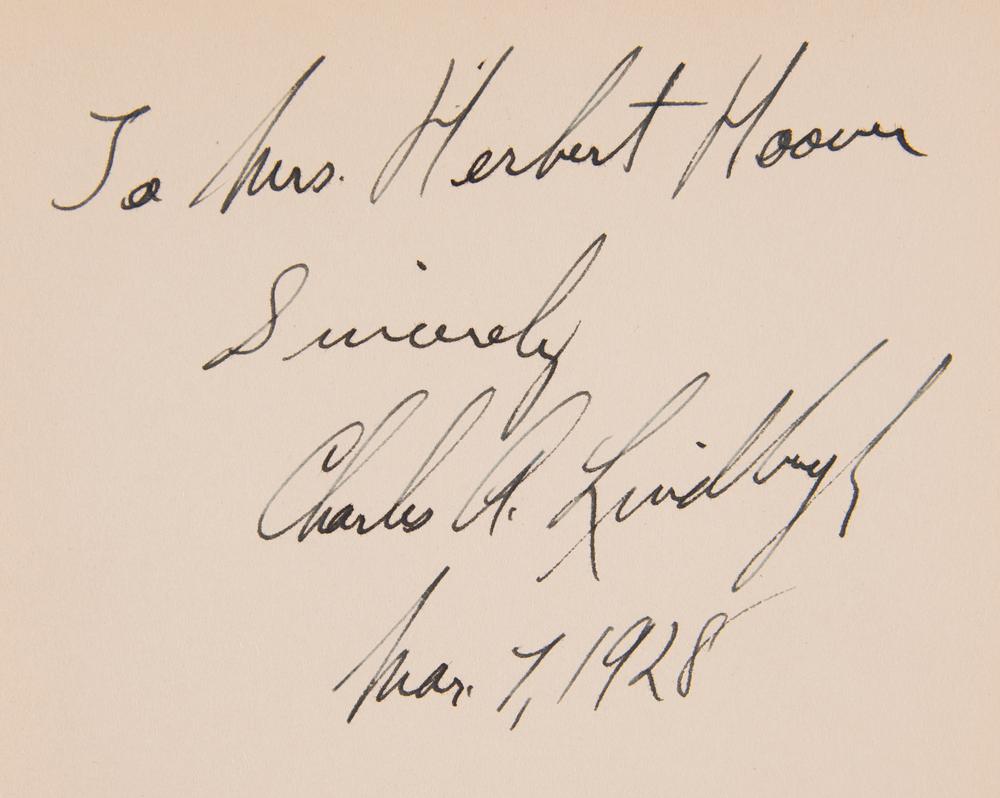 To Mrs. Herbert Hoover
Sincerely
Charles A. Lindbergh
Mar. 7, 1928